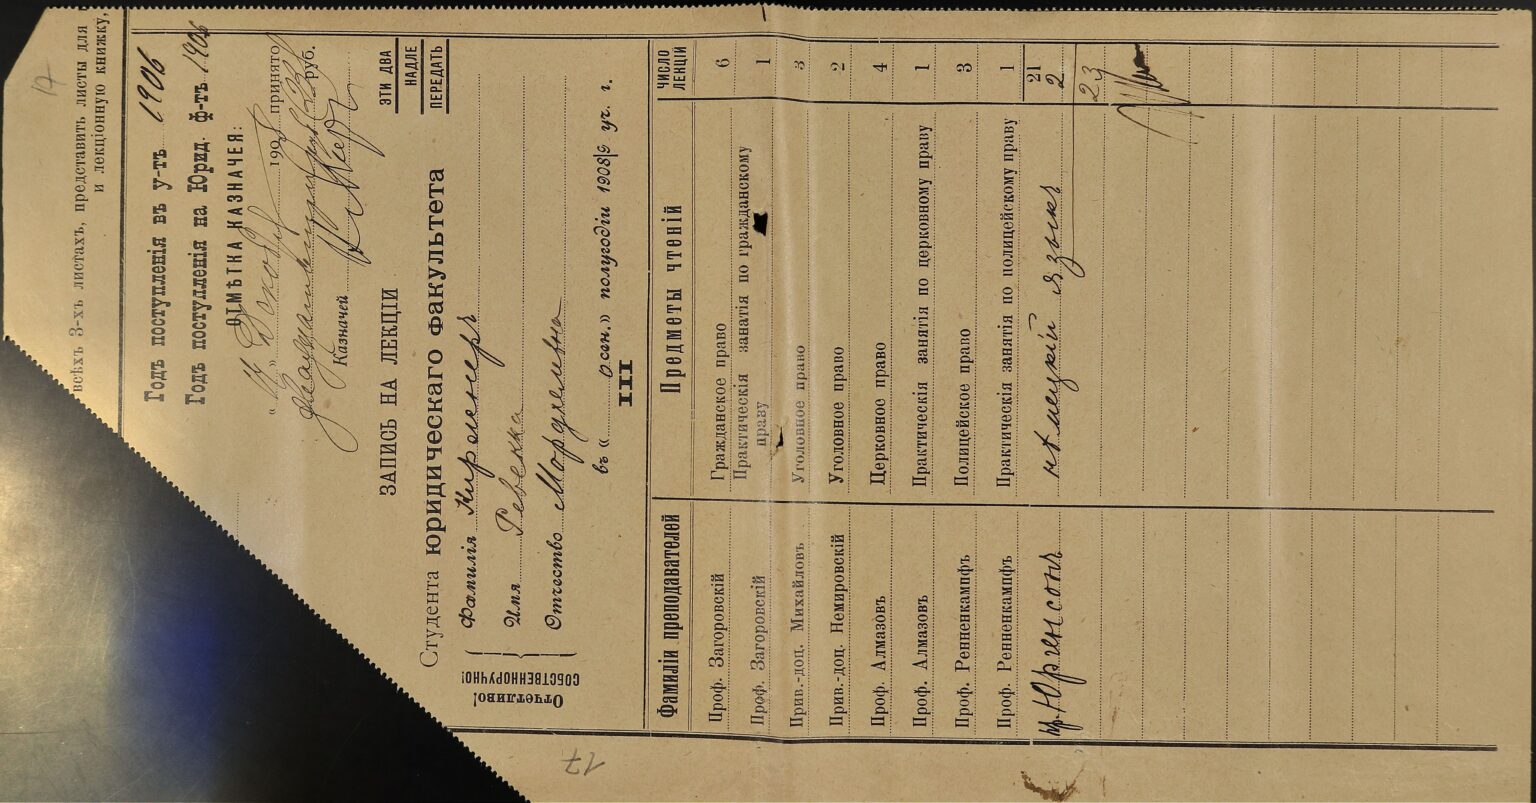 всѣхъ 3-хъ листахъ, представить листы для
и лекціонную книжку,
17
Годъ поступленія въ у-тъ 1906
Годъ поступленія на Юрид. ф-тъ 1906
ОТМѢТКА КАЗНАЧЕЯ:
190 принято
руб.
Казначей
ЗАПИСЬ НА ЛЕКЦІИ
ЭТИ ДВА
НАДЛЕ
ПЕРЕДАТЬ
Студента ЮРИДИЧЕСКАГО ФАКУЛЬТЕТА
Отчетливо!
СОБСТВЕННОРУЧНО!
Фамилія
Имя Ревекка
Отчество
въ „ О сен.” полугодіи 1908/9 уч. г.
III
Фамиліи преподавателей Предметы чтеній ЧИСЛО ЛЕКЦІЙ
Проф. Загоровскій Гражданское право 6
Проф. Загоровскій Практическія занатія по гражданскому праву 1
Прив.-доц. Михайловъ Уголовное право 3
Прив.-доц. Немировскій Уголовное право 2
Проф. Алмазовъ Церковное право 4
Проф. Алмазовъ Практическія занятія по церковному праву 1
Проф. Ренненкампфъ Полицейское право 3
Проф. Ренненкампфъ Практическія занятія по полицейскому праву 1
21
пр. Юргенсонъ нѣмецкій языкъ 2
23
17